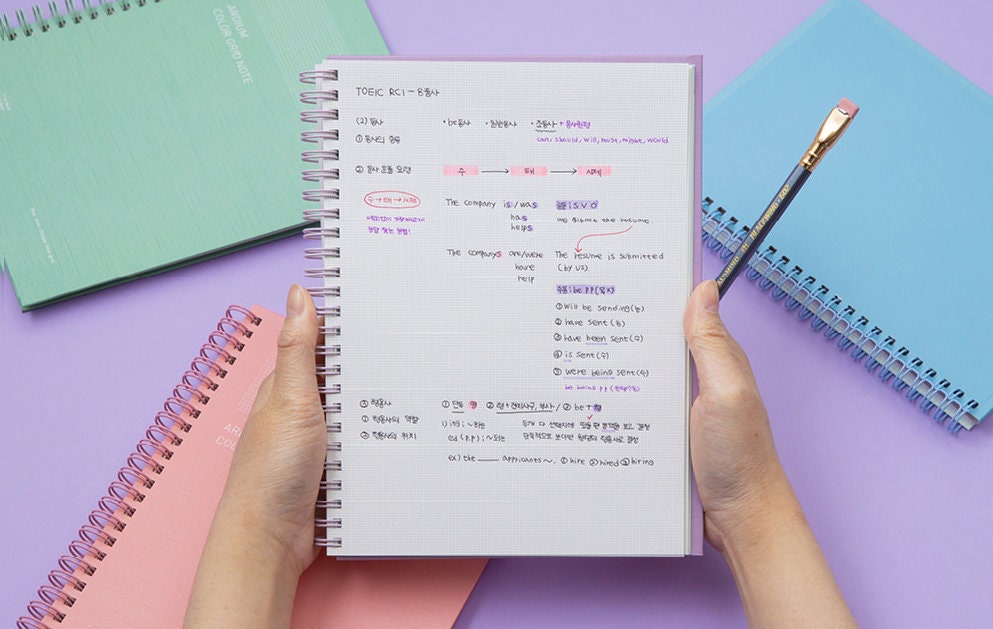 ARDIUM
COLOR GRID NOTE
TOEIC RC1 - 용품사
(2) 동사 • be동사 • 일반동사 • 조동사 + 동사원형
① 동사의 종류 can, should, will, must, might, would
② 동사 문풀 요령 수 → 태 → 시제
수 → 태 → 시제
정답 찾는 방법!
The company is/was
has
helps
능동 : S V O
we submit the resume.
The companys are/were
have
help
The resume is submitted
(by us).
수동 : be p.p (목X)
① will be sending (능)
② have sent (능)
③ have been sent (수)
④ is sent (수)
⑤ were being sent (수)
be being p.p (진행수동)
③ 형용사 ① 단독 명 ② 형+전치사구, 부사 / ③ be + 형
① 형용사의 역할 1) ing ; ~하는
② 형용사의 위치 ed (p.p) ; ~되는
두개 다 선택지에 있을 땐 문맥을 보고 결정
ex) the ___ applicants ~. ① hire ② hired ③ hiring
AR
COLO
PALOMINO
BLACKWING 602